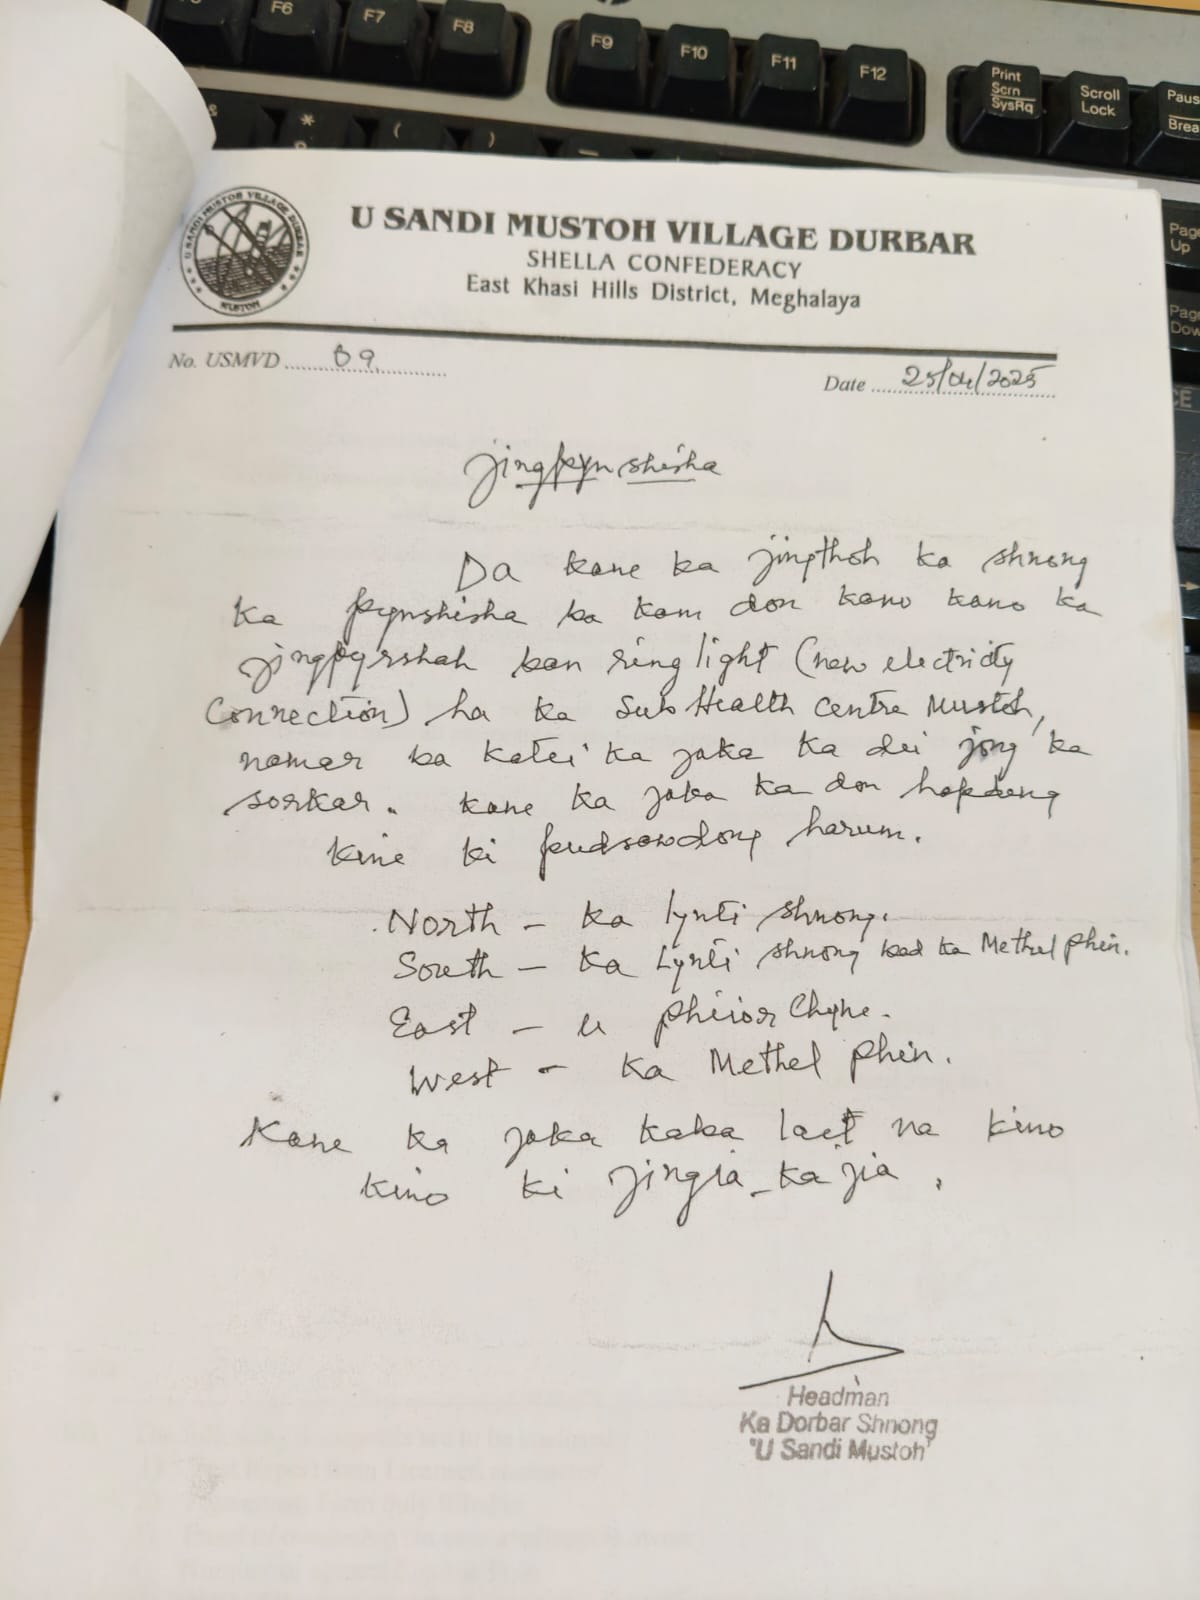 F6 F7 F8 F9 F10 F11 F12
Print Scrn SysRq
Scroll Lock
Page Up
U SANDI MUSTOH VILLAGE DURBAR
MUSTOH
U SANDI MUSTOH VILLAGE DURBAR
SHELLA CONFEDERACY
East Khasi Hills District, Meghalaya
No. USMVD 09
Date 25/04/2025
Jingpynshisha
Da kane ka jingthoh ka shnong
ka pynshisha ba kam don kano kano ka
jingpyrshah ban ring light (new electricity
Connection) ha ka Sub Health Centre Mustoh,
namar ba katei ka jaka ka dei jong ka
sorkar. kane ka jaka ka don hapdeng
kine ki pudsawdong harum.
North - ka lynti shnong.
South - ka Lynti shnong bad ka Methel phin.
East - u Phiior Chyne.
West - ka Methel phin.
Kane ka jaka kaba laet na kino
kino ki jingia-kajia.
Headman
Ka Dorbar Shnong
"U Sandi Mustoh"